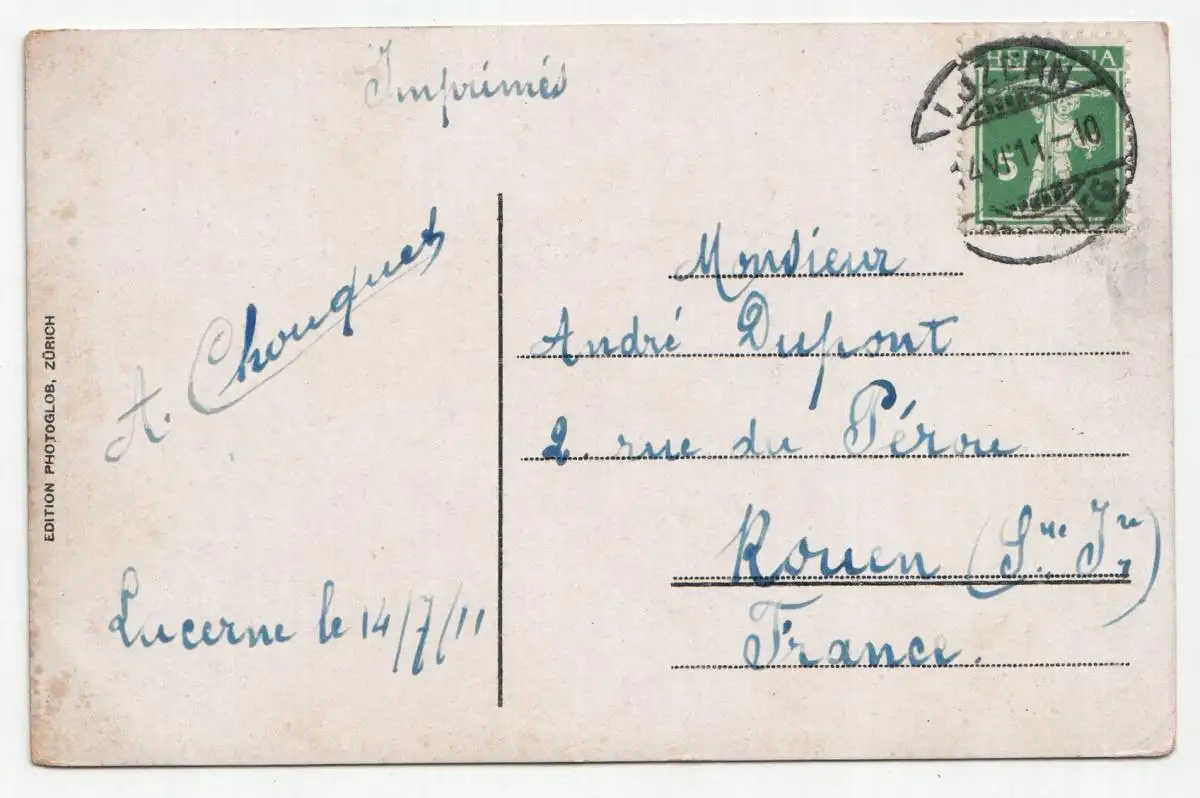 Imprimés
HELVETIA
5
LUZERN
14.VII.11-10
A. Chouquet
Lucerne le 14/7/11
Monsieur
André Dupont
2. rue du Pérou
Rouen (Sne. Ire)
France.
EDITION PHOTOGLOB, ZÜRICH